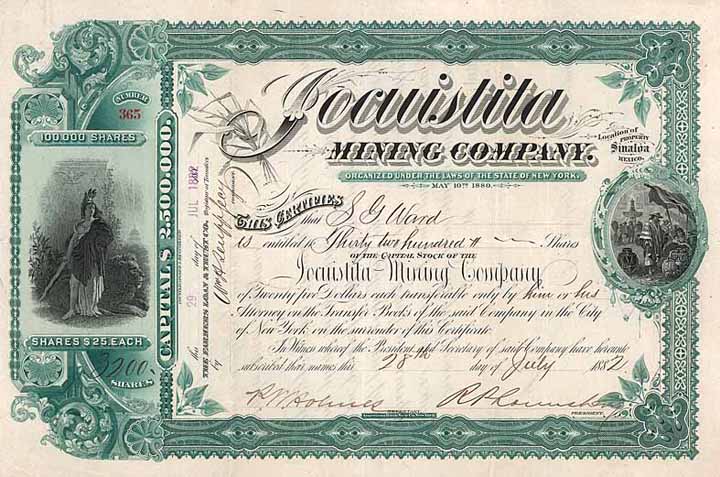 NUMBER
365
100.000 SHARES
CAPITAL $ 2.500.000.
SHARES $ 25. EACH
3200
SHARES
Jocuistita
MINING COMPANY.
ORGANIZED UNDER THE LAWS OF THE STATE OF NEW YORK,
MAY 10TH 1880.
Location of
PROPERTY
Sinaloa
MEXICO.
this 29 day of JUL 1882
THE FARMERS LOAN & TRUST CO. Registrar of Transfers
by
This Certifies that S G Ward
is entitled to Thirty two hundred Shares
OF THE CAPITAL STOCK OF THE
Jocuistita Mining Company
of Twenty five Dollars each transferable only by him or his
Attorney on the Transfer Books of the said Company in the City
of New York on the surrender of this Certificate.
In Witness whereof the President and Secretary of said Company have hereunto
subscribed their names this 28th day of July 1882
PRESIDENT.